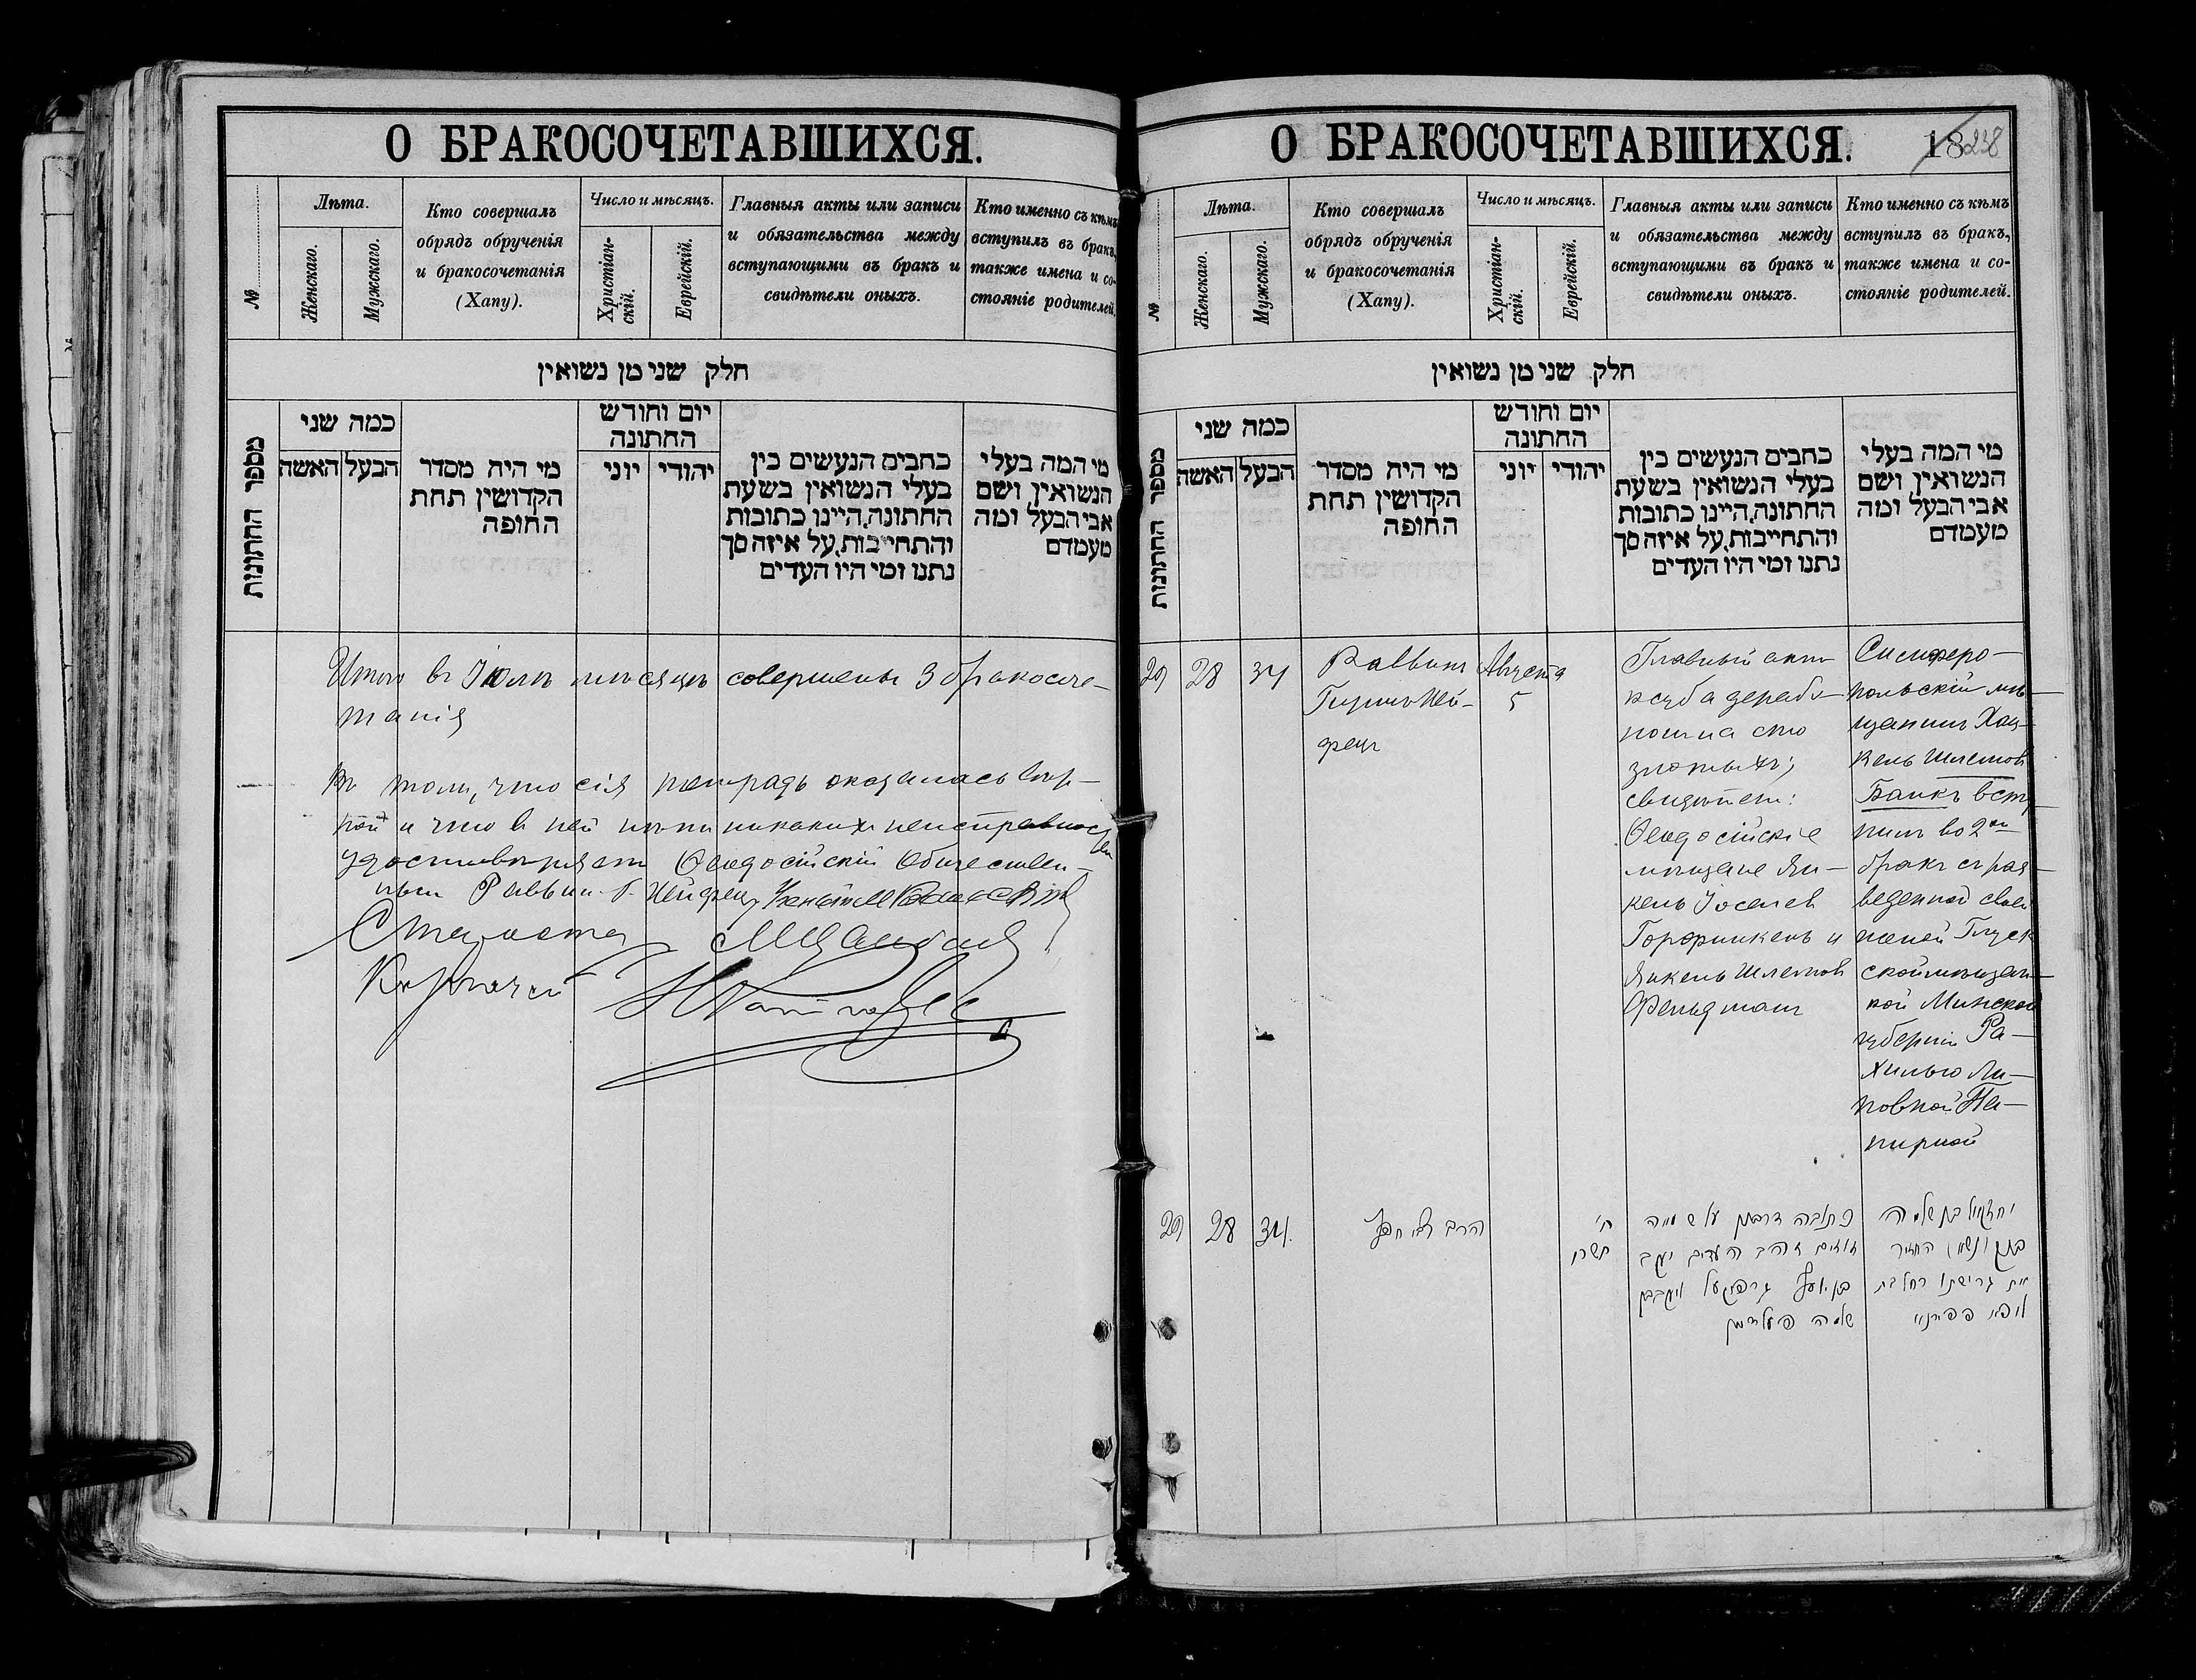 О БРАКОСОЧЕТАВШИХСЯ.
№
Лѣта.
Женскаго.
Мужскаго.
Кто совершалъ
обрядъ обрученія
и бракосочетанія
(Хапу).
Число и мѣсяцъ.
Христіан-
скій.
Еврейскій.
Главныя акты или записи
и обязательства между
вступающими въ бракъ и
свидѣтели оныхъ.
Кто именно съ кѣмъ
вступилъ въ бракъ,
также имена и со-
стояніе родителей.
חלק שני מן נשואין
מספר החתונות
כמה שני
האשה
הבעל
מי היה מסדר
הקדושין תחת
החופה
יום וחודש
החתונה
יוני
יהודי
כתבים הנעשים בין
בעלי הנשואין בשעת
החתונה, היינו כתובות
והתחייבות, על איזה סך
נתנו ומי היו העדים
מי המה בעלי
הנשואין ושם
אבי הבעל ומה
מעמדם
Итого въ Іюлѣ мѣсяцѣ совершены 3 бракосоче-
танія
Въ томъ, что сія тетрадь оказалась вѣр-
ной и что въ ней нѣтъ никакихъ неисправностей
удостовѣряетъ Ѳеодосійскій Обществен-
ный Раввинъ Г. Нейфецъ
Староста
Казначей
О БРАКОСОЧЕТАВШИХСЯ.
18
238
№
Лѣта.
Женскаго.
Мужскаго.
Кто совершалъ
обрядъ обрученія
и бракосочетанія
(Хапу).
Число и мѣсяцъ.
Христіан-
скій.
Еврейскій.
Главныя акты или записи
и обязательства между
вступающими въ бракъ и
свидѣтели оныхъ.
Кто именно съ кѣмъ
вступилъ въ бракъ,
также имена и со-
стояніе родителей.
חלק שני מן נשואין
מספר החתונות
כמה שני
האשה
הבעל
מי היה מסדר
הקדושין תחת
החופה
יום וחודש
החתונה
יוני
יהודי
כתבים הנעשים בין
בעלי הנשואין בשעת
החתונה, היינו כתובות
והתחייבות, על איזה סך
נתנו ומי היו העדים
מי המה בעלי
הנשואין ושם
אבי הבעל ומה
מעמדם
29
28
34
Раввинъ
Гиршъ Ней-
фецъ
Августа
5
Главный актъ
ксуба дераб-
на сто
злотыхъ;
свидѣтели:
Ѳеодосійскіе
мѣщане Ян-
кель Іоселев
Горфинкель и
Янкель Шлемов
Фельдманъ
Симферо-
польскій мѣ-
щанинъ Хац-
кель Шлемов
Банкъ всту-
пилъ во 2ой
бракъ съ раз-
веденной своей
женой Глуск
ской мѣщан-
кой Минской
губерніи Ра-
хилью Ли-
повной Па-
пирной
29
28
34.
הרב
ח'
תשרי
כתובה דרבנן על שי מאה
זוזים זהב העדים יעקב
בן יוסף גרפינקעל ויעקב בן
שלמה פעלדמאן
יחזקאל בן שלמה
בנק ונשא החזיר
את גרושתו רחל בת
ליפא פפירנוי